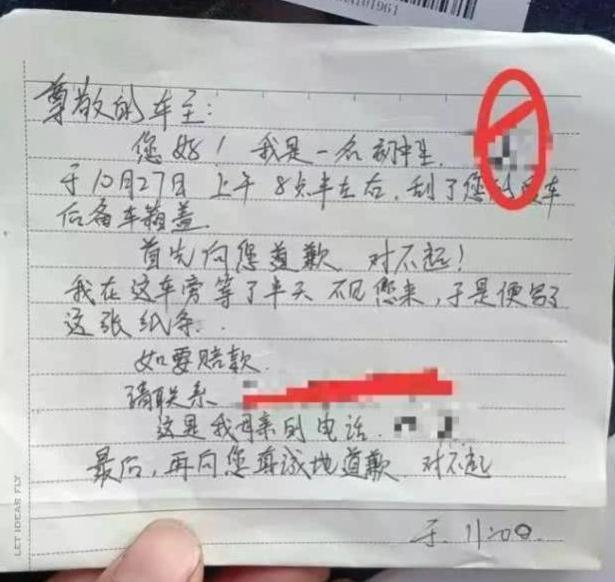 尊敬的车主:
您好! 我是一名初中生.
于10月27日 上午 8点半左右, 刮了您的爱车
后备车箱盖.
首先向您道歉 对不起!
我在这车旁等了半天 不见您来, 于是便写了
这张纸条.
如要赔款.
请联系
这是我母亲的电话.
最后, 再向您真诚地道歉 对不起
于. 11:00.
LET IDEAS FLY